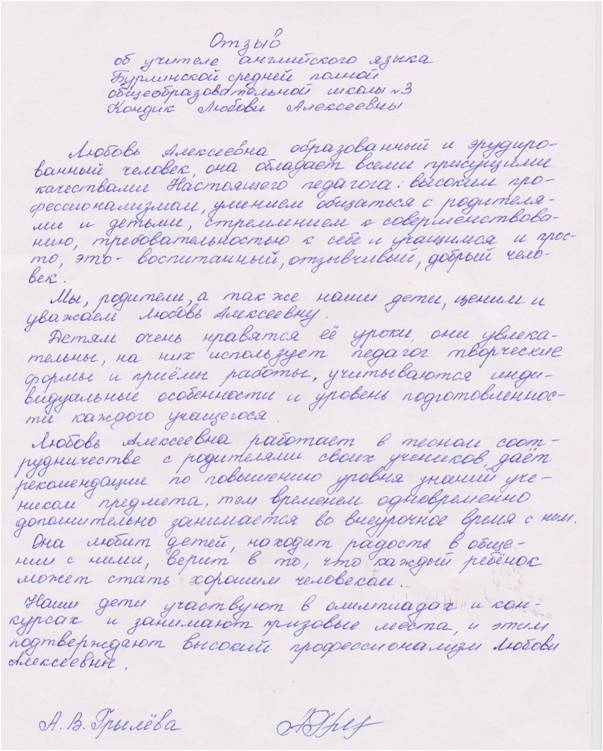 Отзыв
об учителе английского языка
Бурлинской средней полной
общеобразовательной школы №3
Кондик Любови Алексеевны
Любовь Алексеевна образованный и эрудиро-
ванный человек, она обладает всеми присущими
качествами Настоящего педагога: высоким про-
фессионализмом, умением общаться с родителя-
ми и детьми, стремлением к совершенствова-
нию, требовательностью к себе и учащимся и прос-
то, это - воспитанный, отзывчивый, добрый чело-
век.
Мы, родители, а так же наши дети, ценим и
уважаем Любовь Алексеевну.
Детям очень нравятся её уроки, они увлека-
тельны, на них использует педагог творческие
формы и приёмы работы, учитываются инди-
видуальные особенности и уровень подготовленнос-
ти каждого учащегося.
Любовь Алексеевна работает в тесном сот-
рудничестве с родителями своих учеников, даёт
рекомендации по повышению уровня знаний уче-
ником предмета, тем временем одновременно
дополнительно занимается во внеурочное время с ним.
Она любит детей, находит радость в обще-
нии с ними, верит в то, что каждый ребёнок
может стать хорошим человеком.
Наши дети участвуют в олимпиадах и кон-
курсах и занимают призовые места, и этим
подтверждают высокий профессионализм Любови
Алексеевны.
А.В. Грылёва